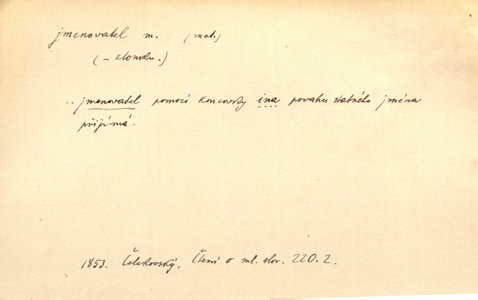 jmenovatel m. (mat.)
(– zlomku.)
.. jmenovatel pomocí koncovky ina povahu statného jména
přijímá.
1853. Čelakovský, Čtení o ml. slov. 220.2.